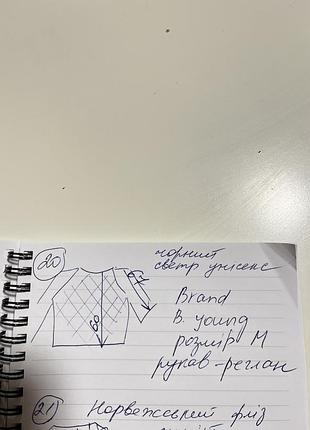 20
чорний
светр унісекс
67
60
Brand
B. young
розмір М
рукав - реглан
21) Норвежський фліз